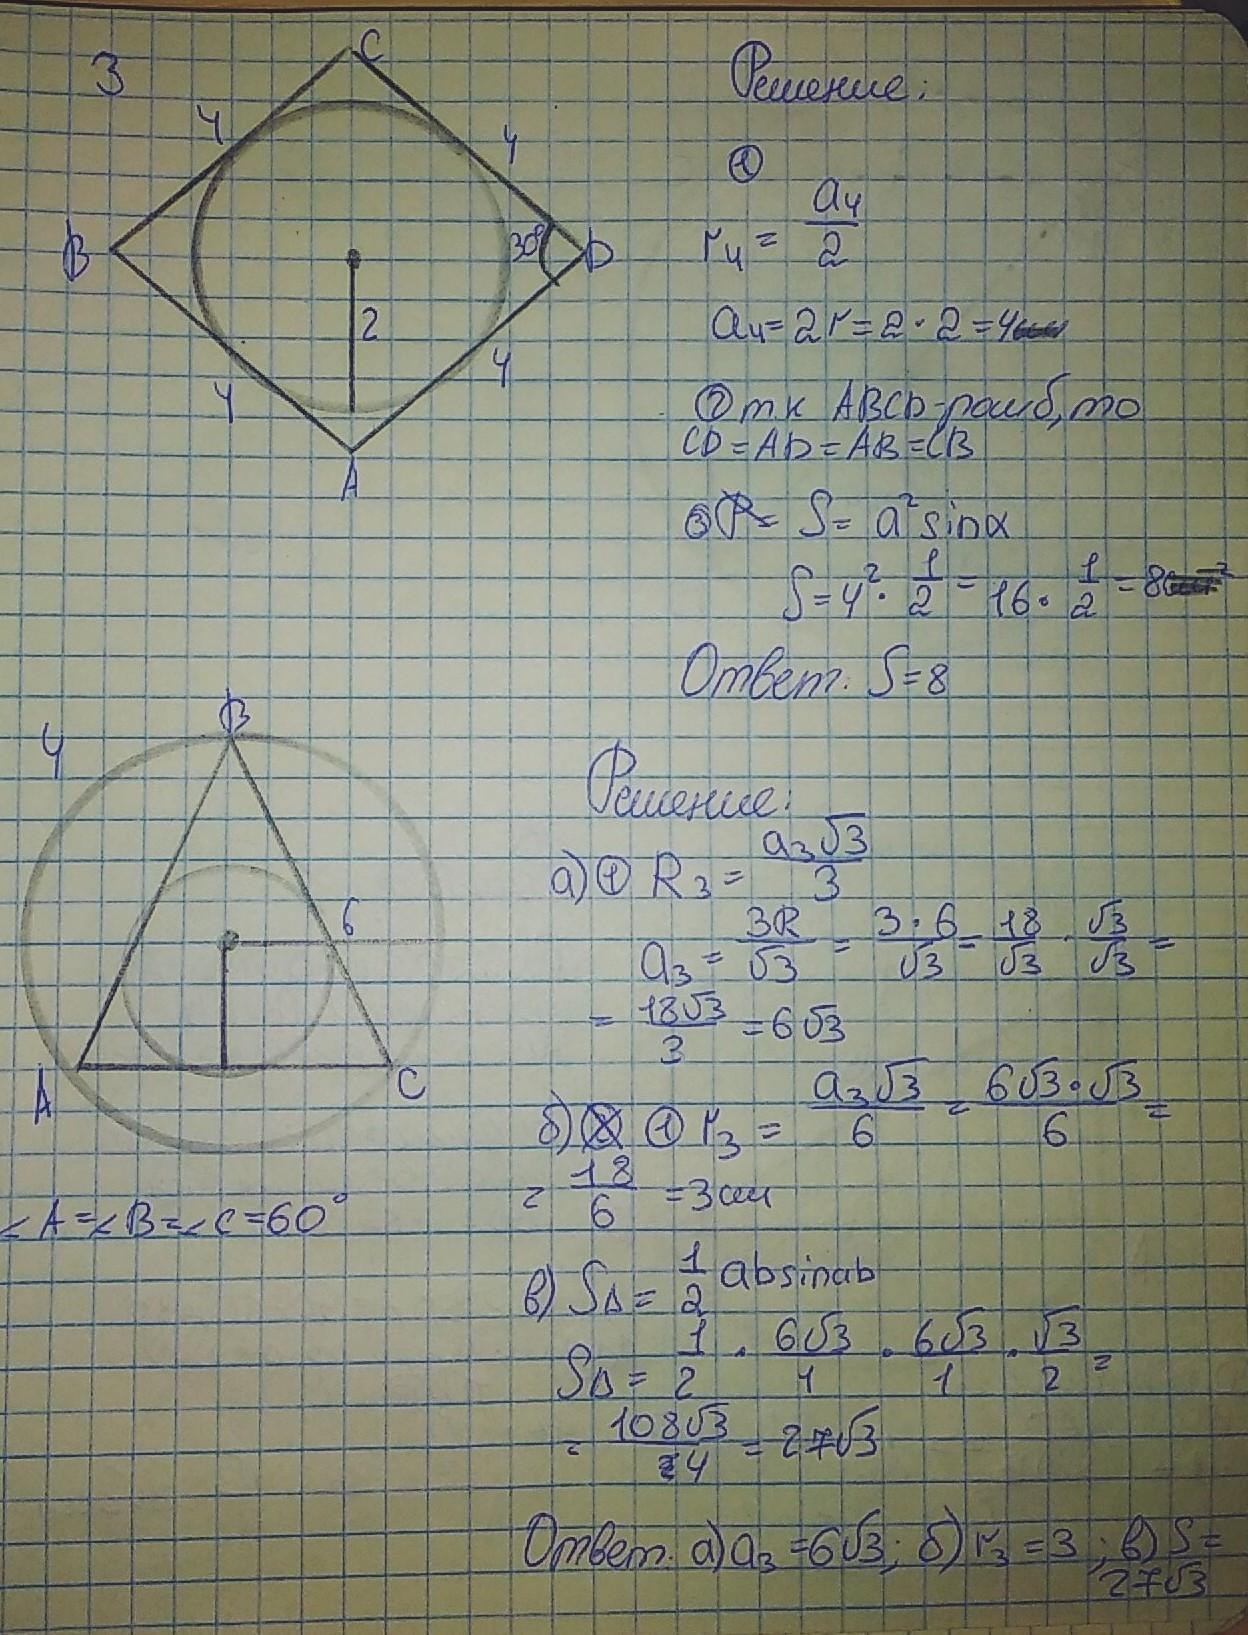 3
C
4
4
B
30°
D
2
4
4
A
Решение:
①
r₄ = a₄/2
a₄ = 2r = 2 · 2 = 4
② т.к ABCD-ромб, то
CD = AD = AB = CB
③ S = a² sinα
S = 4² · 1/2 = 16 · 1/2 = 8
Ответ: S = 8
4
B
6
A
C
∠A = ∠B = ∠C = 60°
Решение:
а) ① R₃ = a₃√3/3
a₃ = 3R/√3 = 3·6/√3 = 18/√3 · √3/√3 =
= 18√3/3 = 6√3
б) ① r₃ = a₃√3/6 = 6√3·√3/6 =
= 18/6 = 3см
в) S△ = 1/2 absinab
S△ = 1/2 · 6√3/1 · 6√3/1 · √3/2 =
= 108√3/4 = 27√3
Ответ: а) a₃ = 6√3; б) r₃ = 3; в) S =
27√3